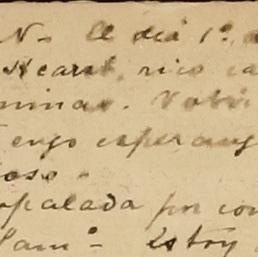 N- El dia 1º, a
Hearst, rico ca
minas. Volvi
Tengo esperanz
oso-
opalada por con
Sam- Estoy